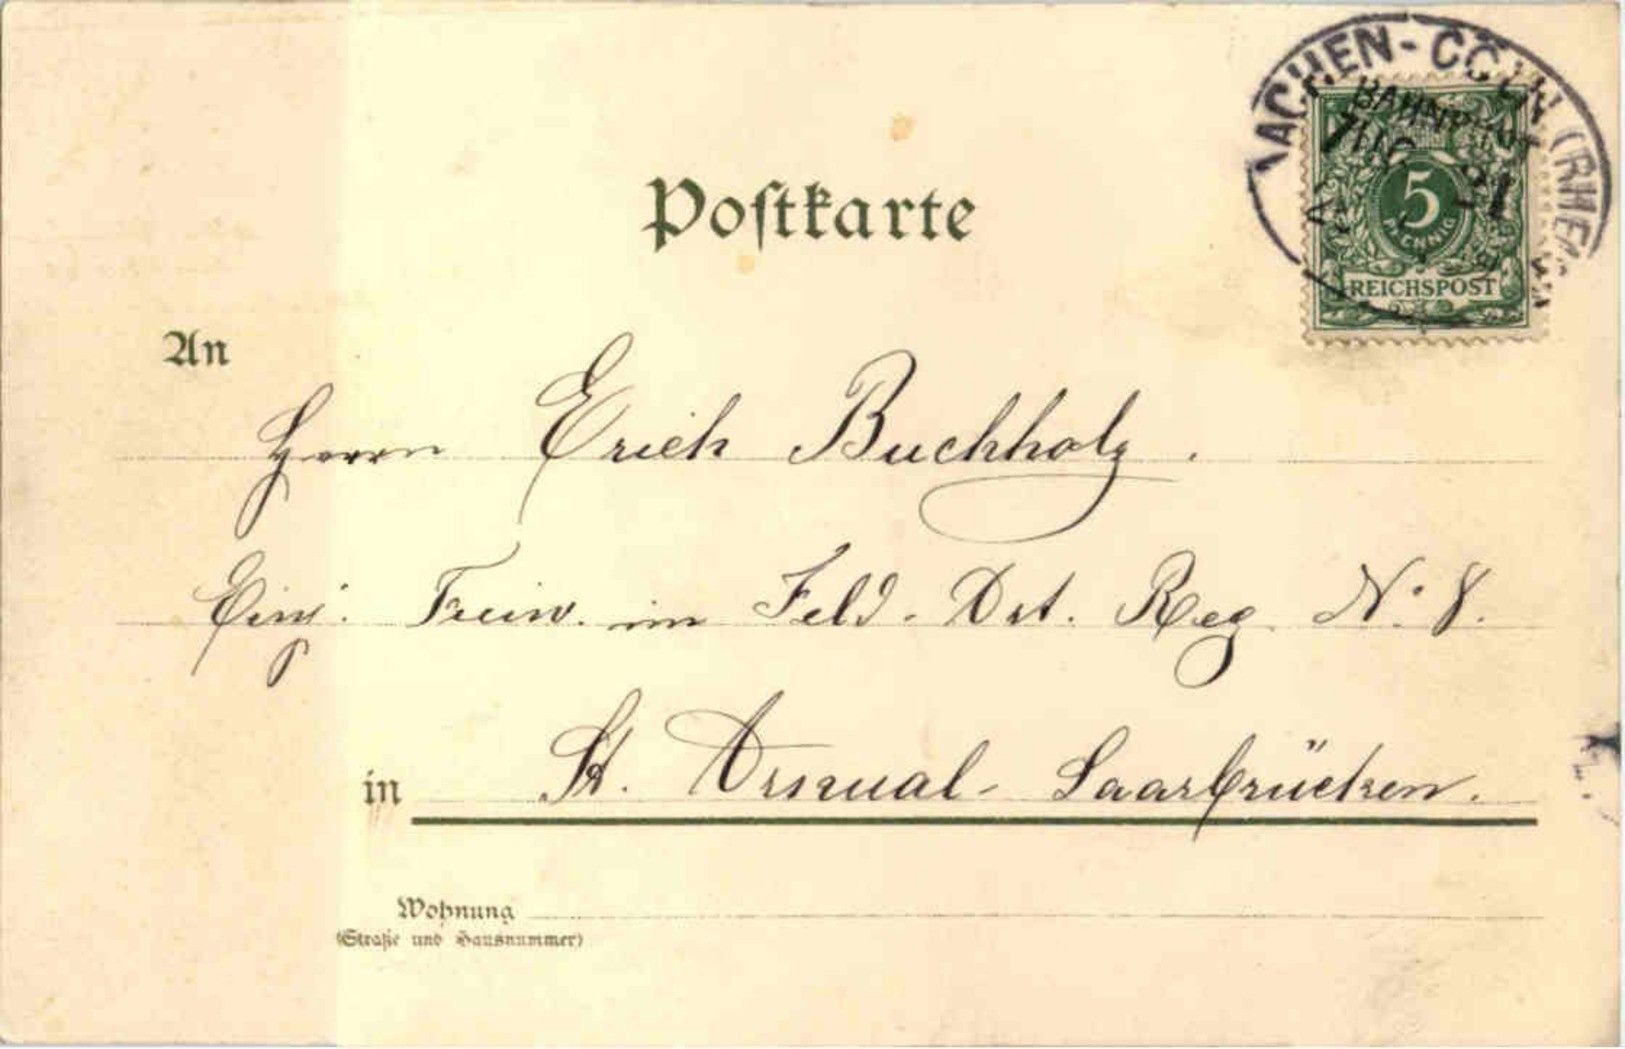 AACHEN-CÖLN (RHEIN
BAHNPOST
ZUG 21
5
PFENNIG
REICHSPOST
Postkarte
An
Herrn Erich Buchholz.
Einj. Freiw. im Feld-Art. Reg. No. 8.
in St. Arnual-Saarbrücken.
Wohnung
(Straße und Hausnummer)